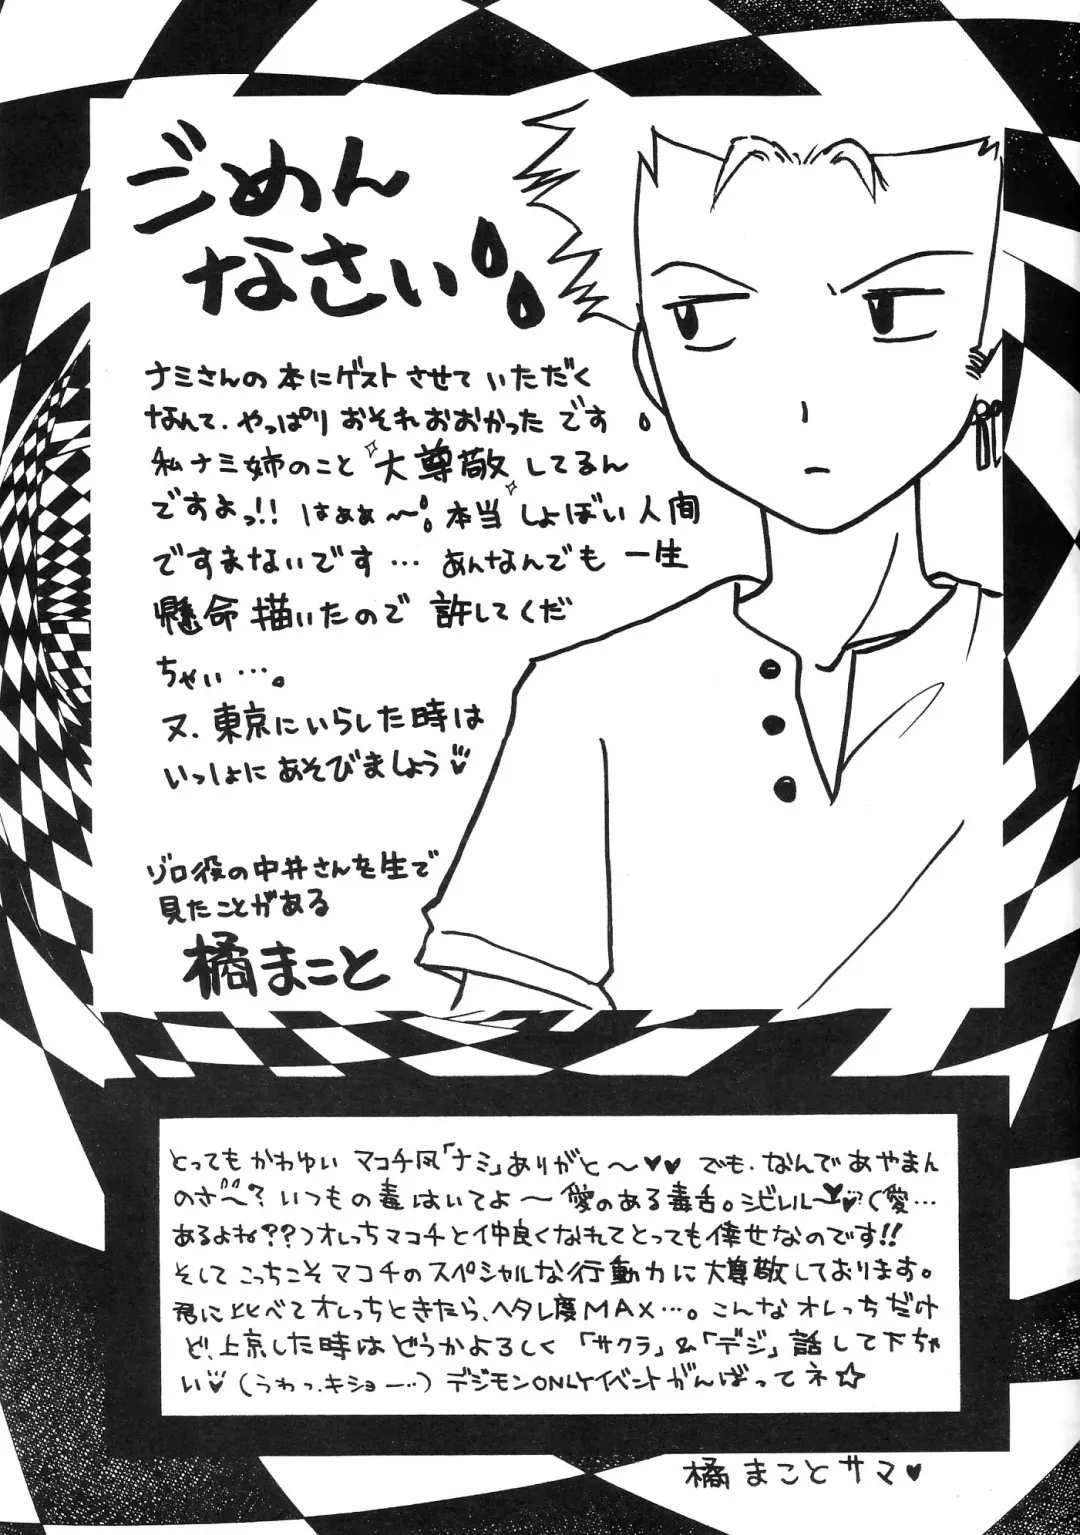 ごめん
なさい
ナミさんの本にゲストさせていただく
なんて、やっぱりおそれおおかったです
私ナミ姉のこと大尊敬してるん
ですよっ!! はぁぁ〜 本当しょぼい人間
ですまないです… あんなんでも一生
懸命描いたので許してくだ
ちゃい…。
又、東京にいらした時は
いっしょにあそびましょう♡
ゾロ役の中井さんを生で
見たことがある
橘まこと
とってもかわゆいマコチ風「ナミ」ありがと〜♥♥ でも、なんであやまん
のさ〜? いつもの毒はいてよ〜 愛のある毒舌。シビレル〜♥?(愛…
あるよね??)オレっちマコチと仲良くなれてとっても倖せなのです!!
そしてこっちこそマコチのスペシャルな行動力に大尊敬しております。
君に比べてオレっちときたら、ヘタレ度MAX…。こんなオレっちだけ
ど、上京した時はどうかよろしく「サクラ」&「デジ」話して下ちゃ
い♡(うわっ、キショー…)デジモンONLYイベントがんばってネ☆
橘まことサマ♥